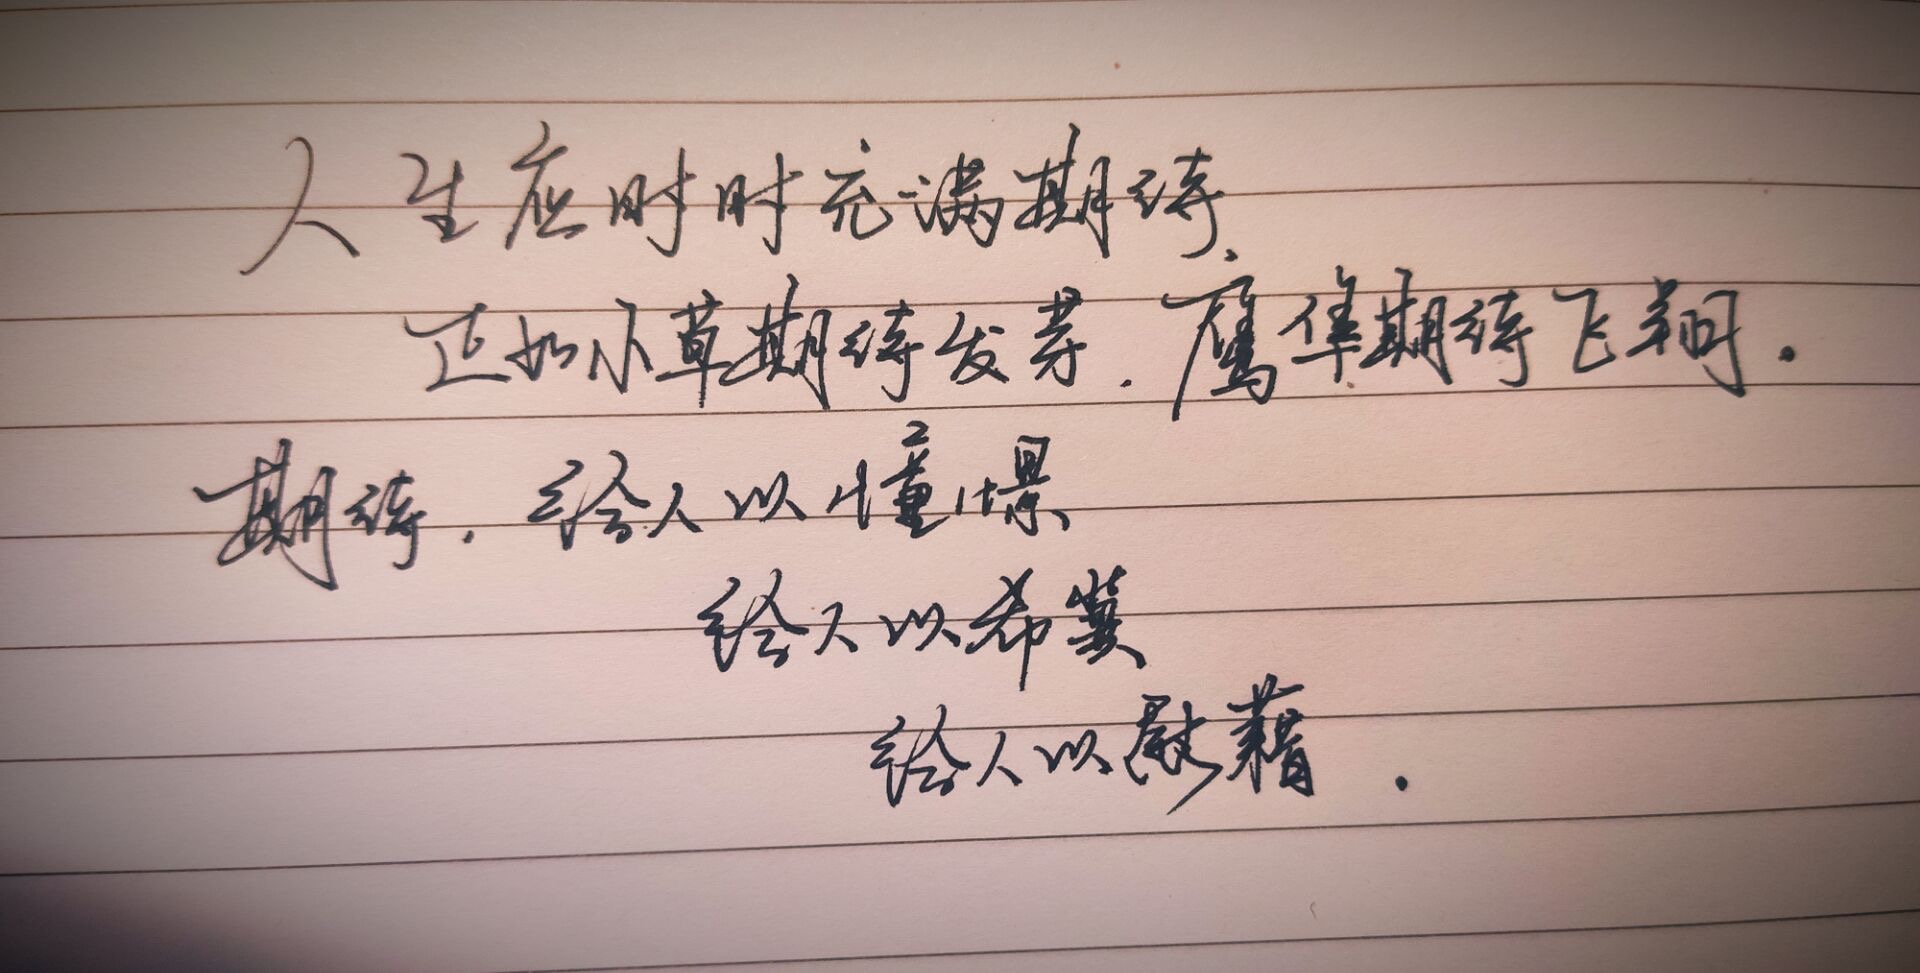 人生应时时充满期待,
正如小草期待发芽.鹰隼期待飞翔.
期待.给人以憧憬
给人以希冀
给人以慰藉.